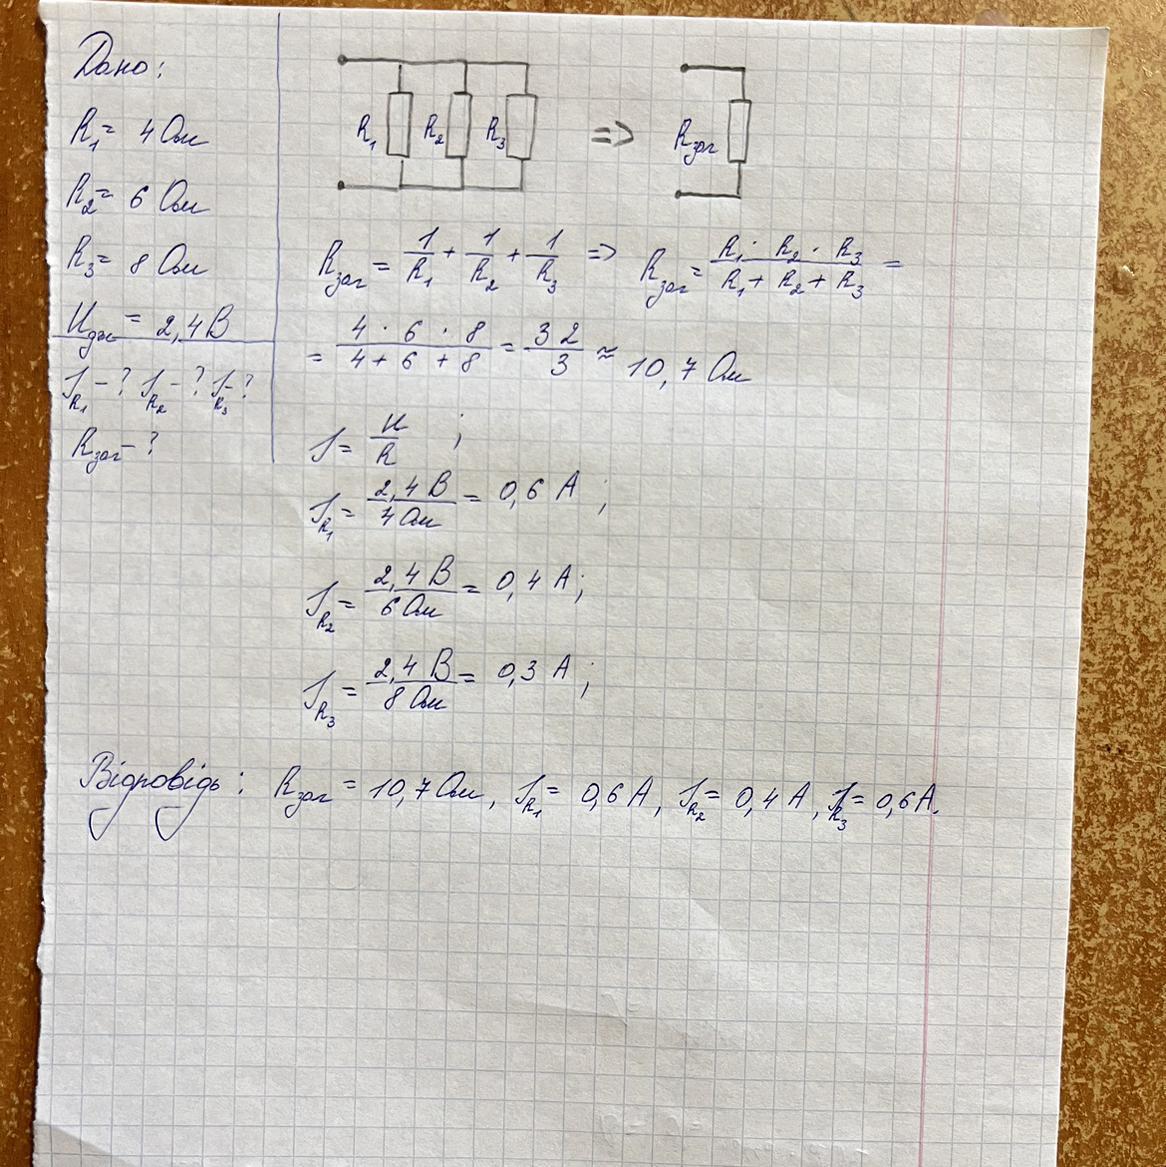 Дано:
R₁ = 4 Ом
R₂ = 6 Ом
R₃ = 8 Ом
U дж = 2,4 В
I R₁ - ? I R₂ - ? I R₃ - ?
R заг - ?
R₁ R₂ R₃ => R заг
R заг = 1/R₁ + 1/R₂ + 1/R₃ => R заг = R₁ · R₂ · R₃ / R₁ + R₂ + R₃ =
= 4 · 6 · 8 / 4 + 6 + 8 = 32/3 ≈ 10,7 Ом
I = U/R ;
I R₁ = 2,4 В / 4 Ом = 0,6 А ;
I R₂ = 2,4 В / 6 Ом = 0,4 А ;
I R₃ = 2,4 В / 8 Ом = 0,3 А ;
Відповідь: R заг = 10,7 Ом, I R₁ = 0,6 А, I R₂ = 0,4 А, I R₃ = 0,6 А.